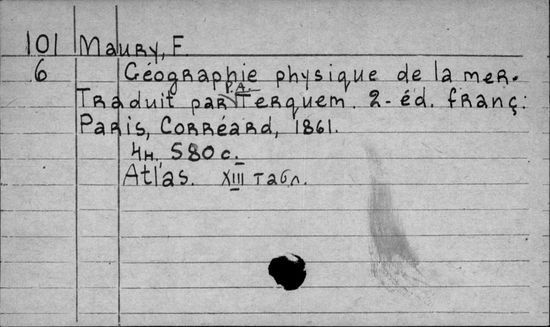 101 Maury, F.
6 Géographie physique de la mer.
Traduit par P.A. Terquem. 2-éd. franç:
Paris, Corréard, 1861.
4н. 580 с.
Atlas. XIII табл.